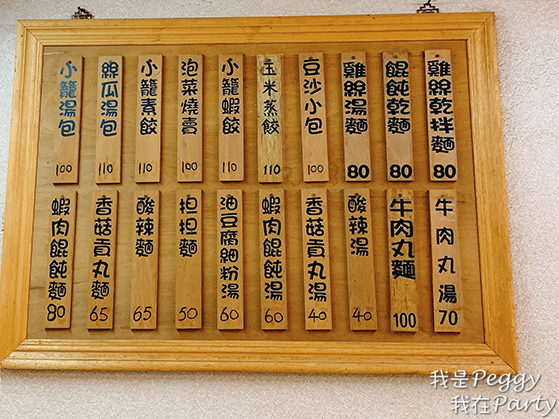 小籠湯包 100
絲瓜湯包 110
小籠素餃 110
泡菜燒賣 100
小籠蝦餃 110
玉米蒸餃 110
豆沙小包 100
雞絲湯麵 80
餛飩乾麵 80
雞絲乾拌麵 80
蝦肉餛飩麵 80
香菇貢丸麵 65
酸辣麵 65
担担麵 50
油豆腐細粉湯 60
蝦肉餛飩湯 60
香菇貢丸湯 40
酸辣湯 40
牛肉丸麵 100
牛肉丸湯 70
我是Peggy
我在Party